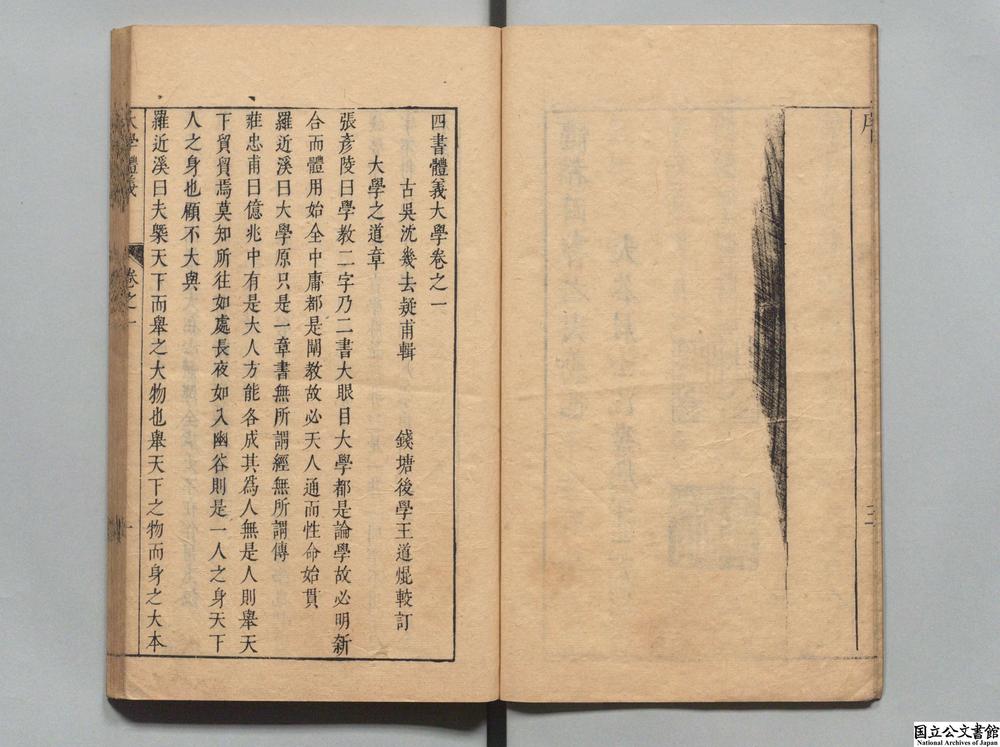 序
三
四書體義大學卷之一
古吳沈幾去疑甫輯 錢塘後學王道焜較訂
大學之道章
張彥陵曰學教二字乃二書大眼目大學都是論學故必明新
合而體用始全中庸都是闡教故必天人通而性命始貫
羅近溪曰大學原只是一章書無所謂經無所謂傳
莊忠甫曰億兆中有是大人方能各成其爲人無是人則舉天
下貿貿焉莫知所往如處長夜如入幽谷則是一人之身天下
人之身也顧不大與
羅近溪曰夫槩天下而舉之大物也舉天下之物而身之大本
大學體義 卷之一 一
国立公文書館
National Archives of Japan